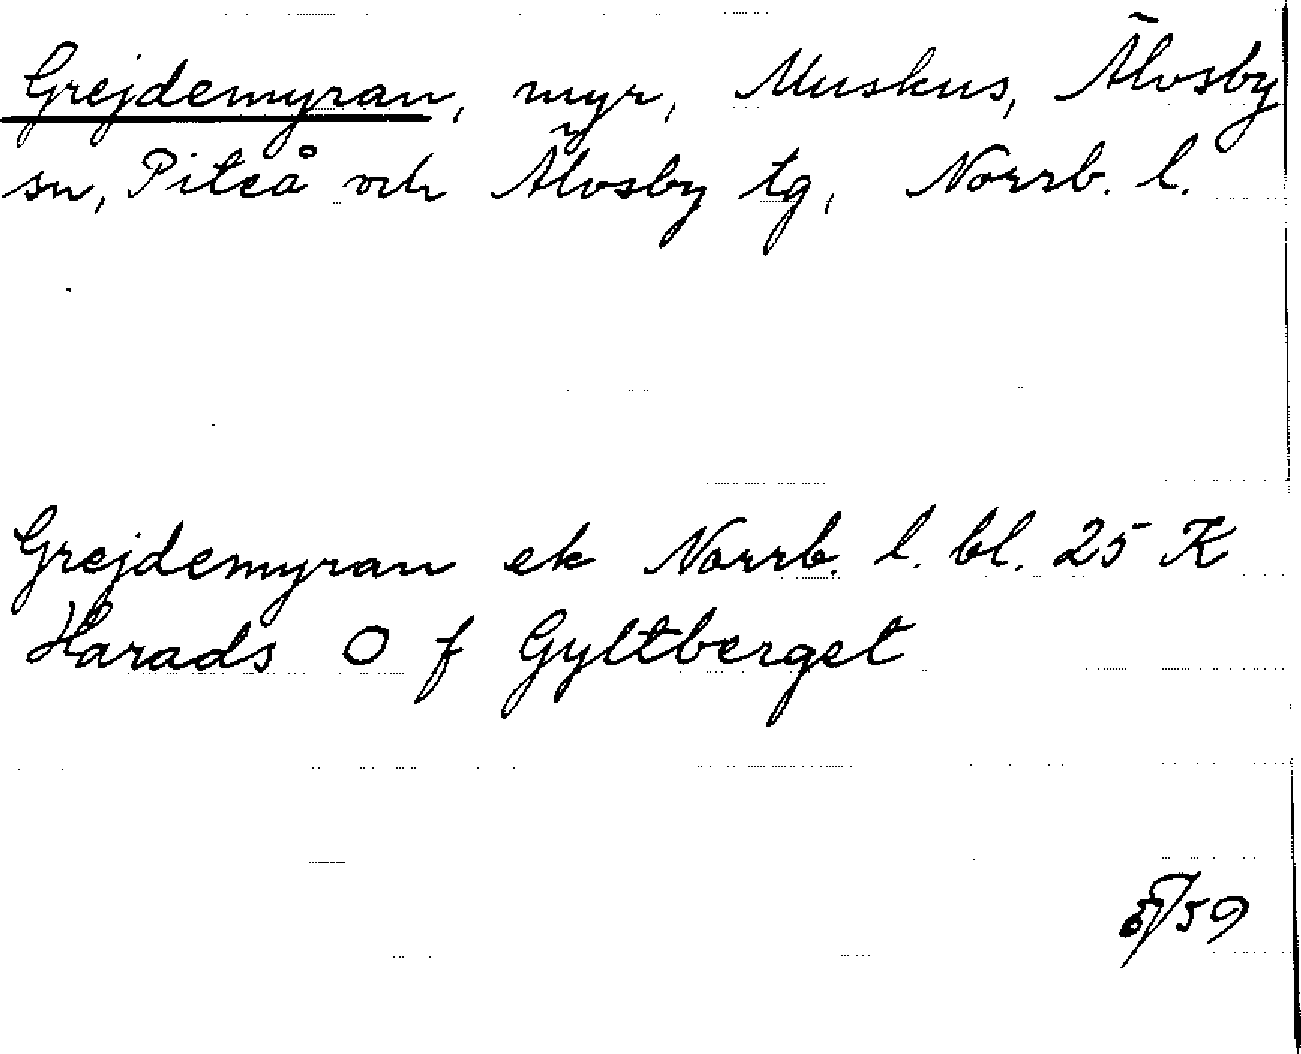 Grejdemyran, myr, Muskus, Älvsby
sn, Piteå och Älvsby tg, Norrb. l.
Grejdemyran ek Norrb. l. bl. 25 K
Harads O f Gyltberget